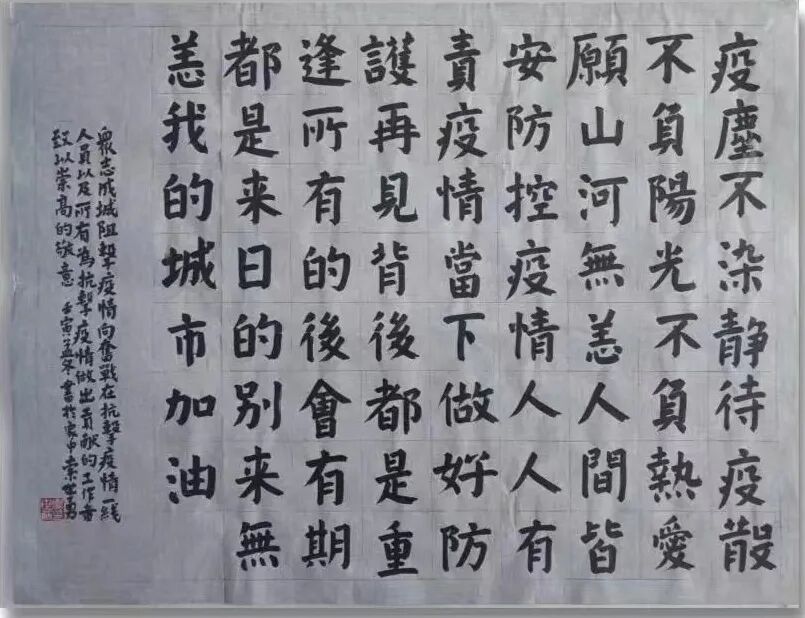 疫塵不染静待疫散
不負陽光不負熱愛
願山河無恙人間皆
安防控疫情人人有
責疫情當下做好防
護再見背後都是重
逢所有的後會有期
都是来日的别来無
恙我的城市加油
衆志成城阻擊疫情向奮戰在抗擊疫情一綫
人員以及所有為抗擊疫情做出貢献的工作者
致以崇高的敬意 壬寅孟冬書於